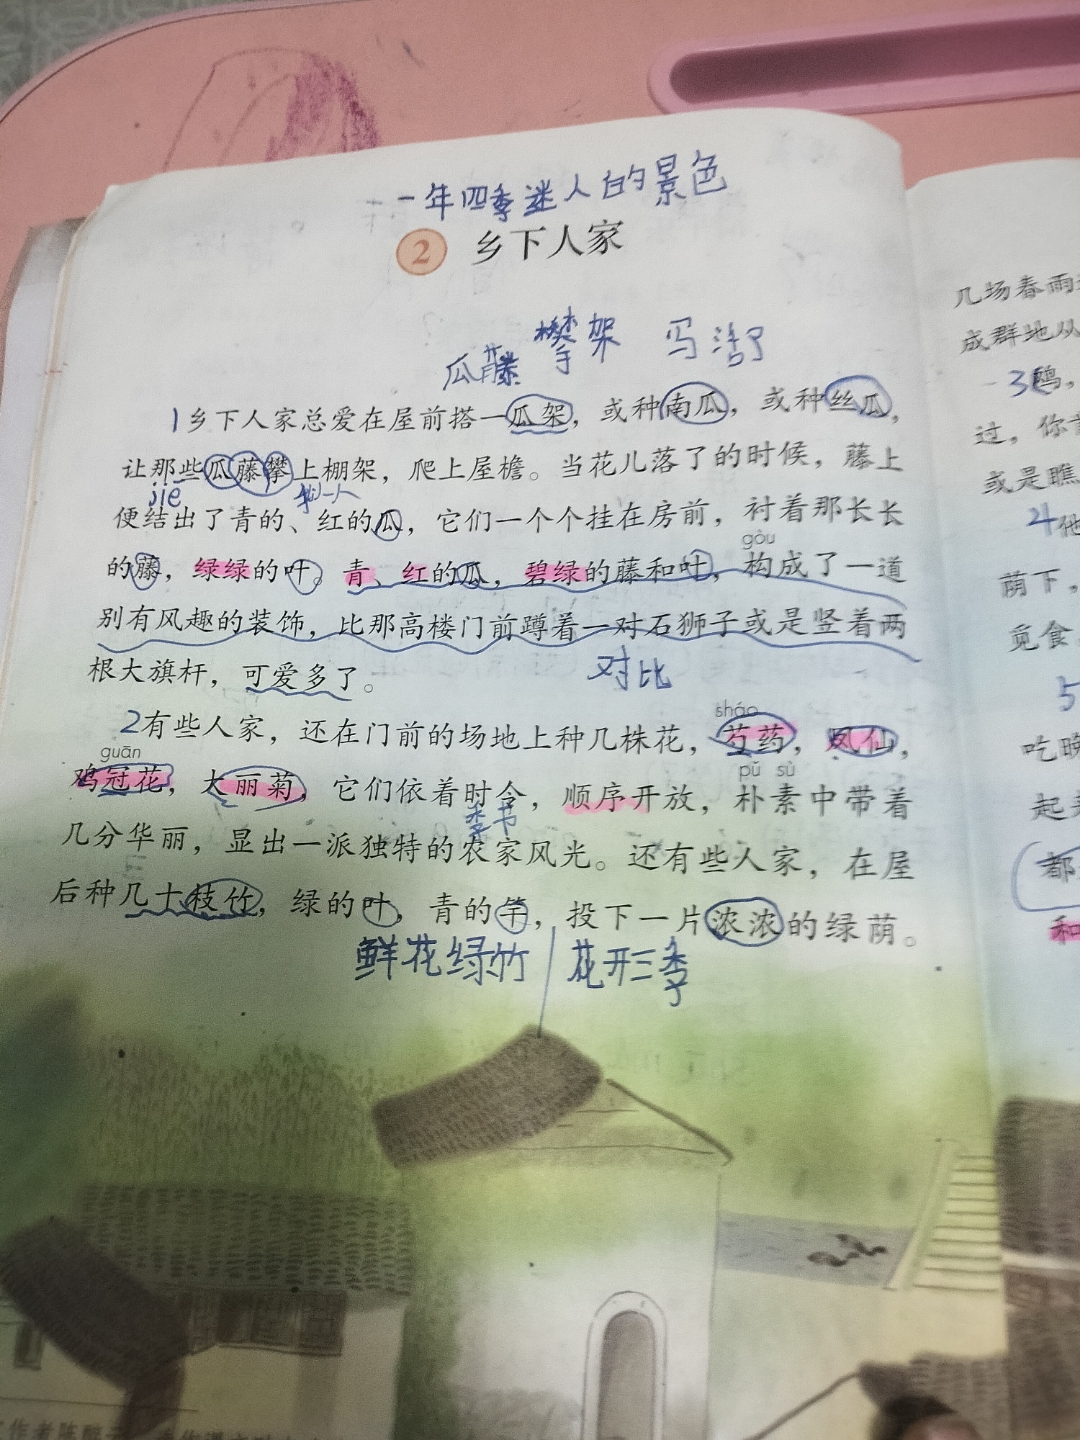 一年四季迷人的景色
2 乡下人家
瓜藤 攀架 写活了
1乡下人家总爱在屋前搭一瓜架，或种南瓜，或种丝瓜，
让那些瓜藤攀上棚架，爬上屋檐。当花儿落了的时候，藤上
jiē
便结出了青的、红的瓜，它们一个个挂在房前，衬着那长长
gòu
的藤，绿绿的叶。青、红的瓜，碧绿的藤和叶，构成了一道
别有风趣的装饰，比那高楼门前蹲着一对石狮子或是竖着两
根大旗杆，可爱多了。
对比
sháo
2有些人家，还在门前的场地上种几株花，芍药，凤仙，
guān pǔ sù
鸡冠花，大丽菊，它们依着时令，顺序开放，朴素中带着
季节
几分华丽，显出一派独特的农家风光。还有些人家，在屋
后种几十枝竹，绿的叶，青的竿，投下一片浓浓的绿荫。
鲜花绿竹 花开三季
几场春雨
成群地从
3
过，你
或是瞧
4他
荫下，
觅食
5
吃晚
起
都
和
作者陈醉云